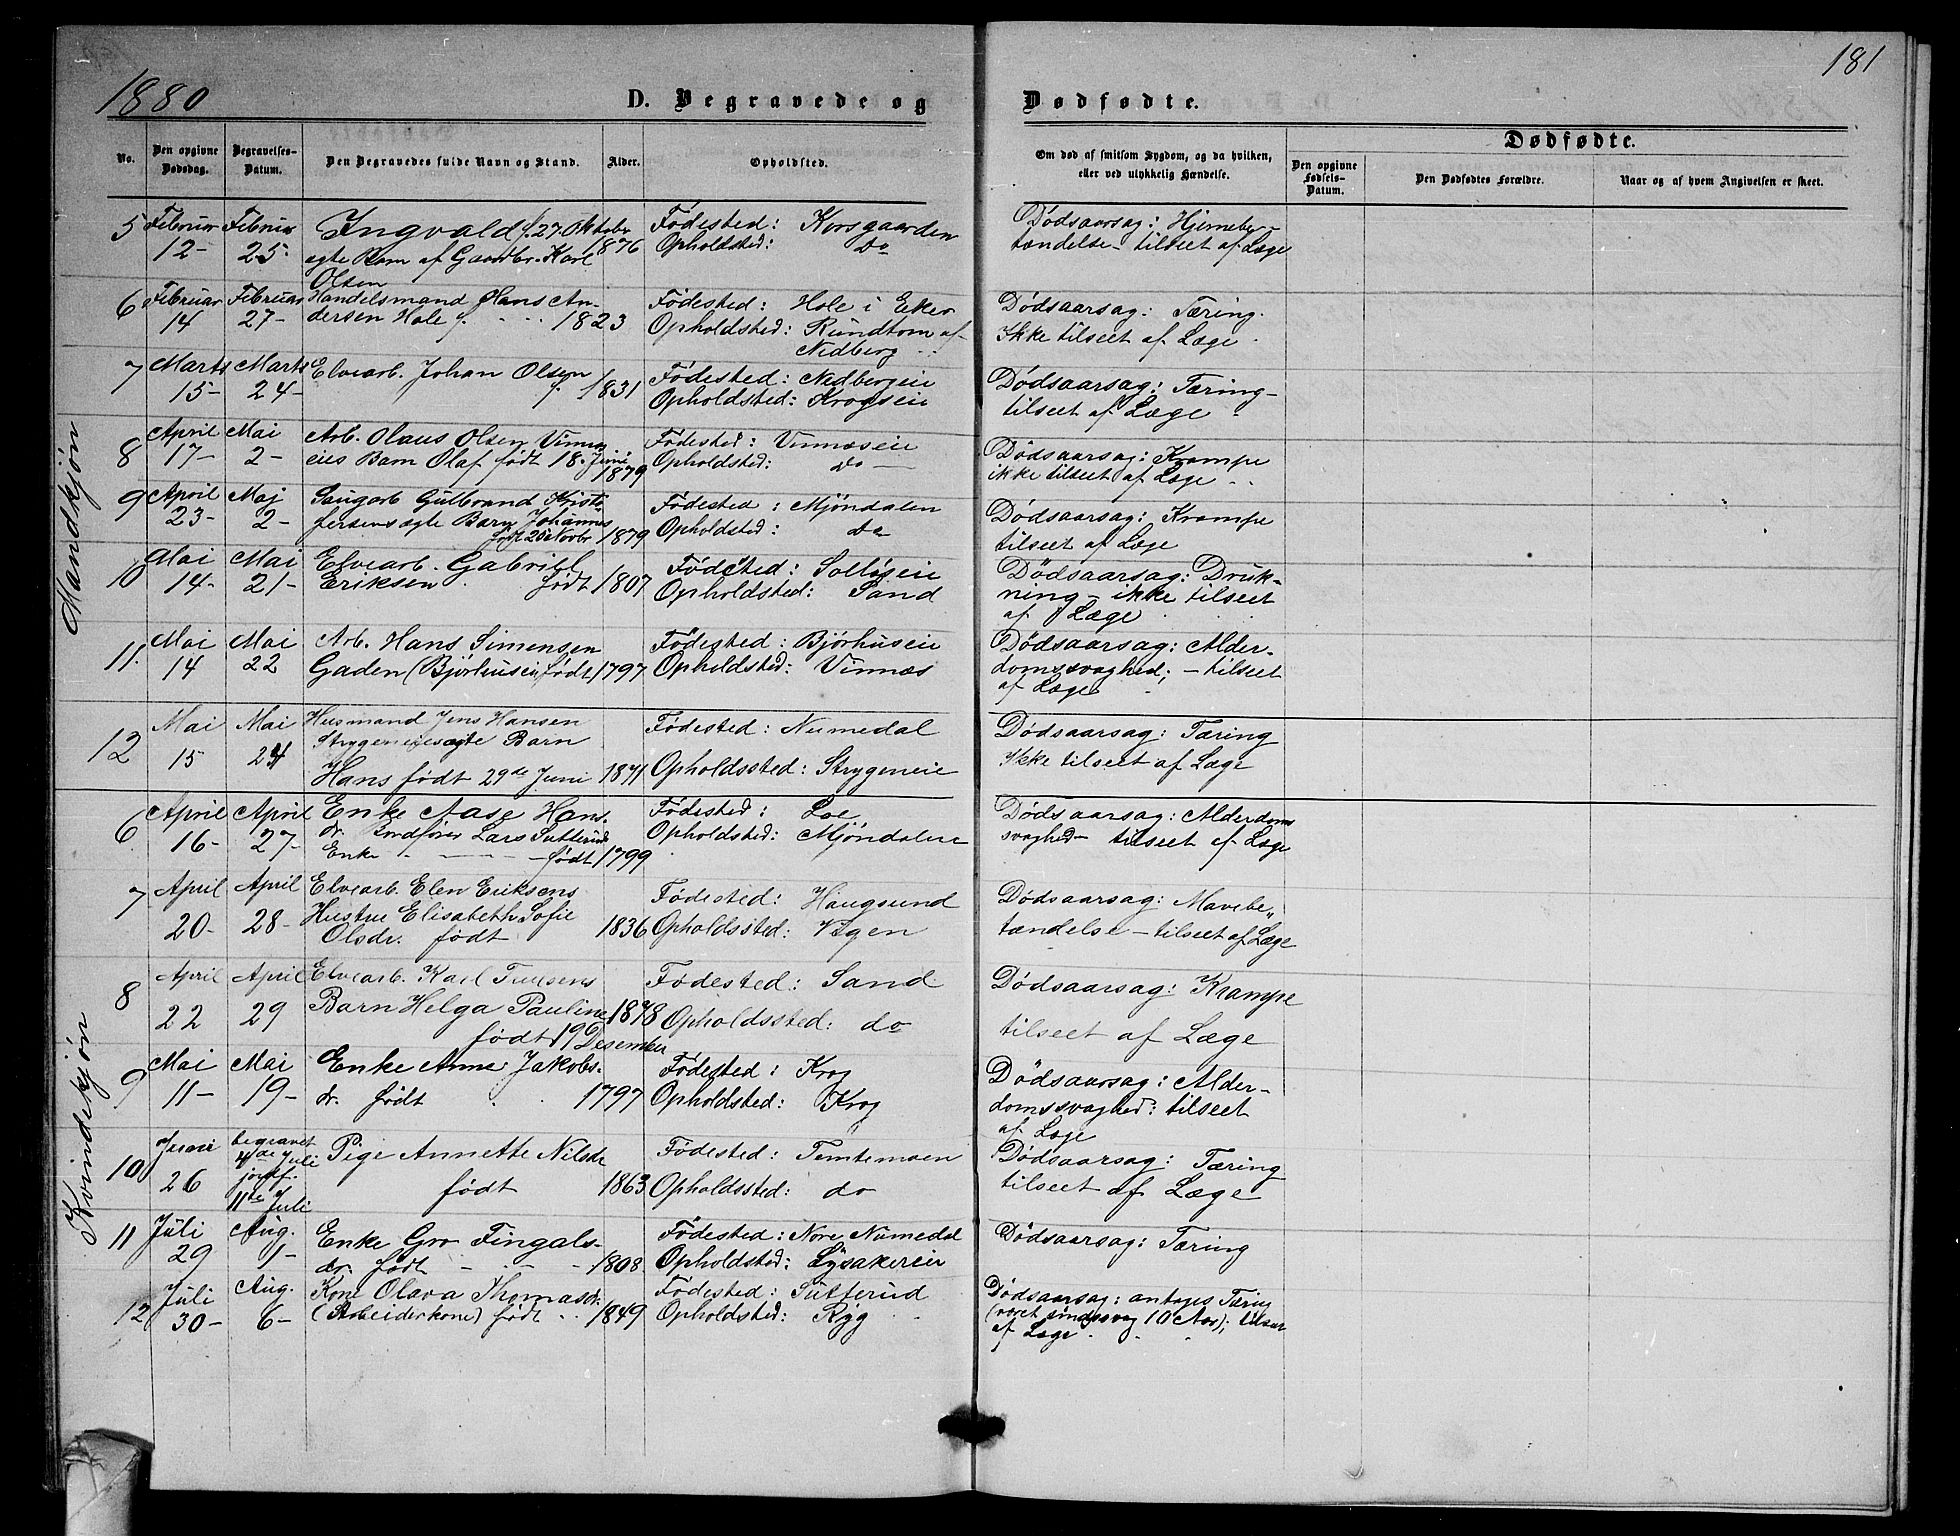 1880
181
D. Begravede og Dødfødte.
No.
Den opgivne Dødsdag.
Begravelses-Datum.
Den Begravedes fulde Navn og Stand.
Alder.
Opholdsted.
Om død af smitsom Sygdom, og da hvilken, eller ved ulykkelig Hændelse.
Dødfødte.
Den opgivne Fødsels-Datum.
Den Dødfødtes Forældre.
Naar og af hvem Angivelsen er skeet.
Mandkjøn
5 Februar Februar Ingvald f. 27. Oktober Fødested: Korsgaarden Dødsaarsag: Hjernebe-
12- 25- ægte Barn af Gaardbr. Karl 1876 Opholdsted: Do tændelse - tilseet af Læge
Olsen
6 Februar Februar Handelsmand Hans An- Fødested: Hole i Eker Dødsaarsag: Tæring.
14 27- dersen Hole f. 1823 Opholdsted: Rundtom af Ikke tilseet af Læge.
Nedberg
7 Marts Marts Elvearb. Johan Olsen Fødested: Nedbergeie Dødsaarsag: Tæring-
15- 24- f. 1831 Opholdsted: Krogseie tilseet af Læge -
8 April Mai Arb. Olaus Olsen Vinnes Fødested: Vinnæseie Dødsaarsag: Krampe
17- 2- eies Barn Olaf født 18. Juni 1879 Opholdsted: do ikke tilseet af Læge
9 April Maj Saugarb. Gulbrand Kristo- Fødested: Mjøndalen Dødsaarsag: Krampe
23- 2- fersens ægte Barn Johannes Opholdsted: Do tilseet af Læge
født 20 Novbr 1879
10 Mai Mai Elvearb. Gabriel Fødested: Solligeie Dødsaarsag: Druk-
14- 21- Eriksen født 1807 Opholdsted: Sand ning - ikke tilseet
af Læge
11. Mai Mai Arb. Hans Simensen Fødested: Bjørhuseie Dødsaarsag: Alder-
14 22 Gaden (Bjørhuseie) født 1797 Opholdsted: Vinnæs domssvaghed; - tilseet
af Læge
12 Mai Mai Husmand Jens Hansen Fødested: Numedal Dødsaarsag: Tæring
15 24 Strygeneies ægte Barn Ikke tilseet af Læge
Hans født 29de Juni 1871 Opholdssted: Strygeneie
Kvindekjøn
6 April April Enke Aase Hans- Fødested: Loe Dødsaarsag: Alderdoms
16- 27- dr. Lars Sutterud Opholdsted: Mjøndalen svaghed - tilseet af Læge
Enke født 1799
7 April April Elvearb. Elen Eriksens Fødested: Haugsund Dødsaarsag: Mavebe-
20- 28- Hustru Elisabeth Sofie Olsdr. født 1836 Opholdssted: Vigen tændelse - tilseet af Læge
8 April April Elvearb. Karl Fødested: Sand Dødsaarsag: Krampe
22 29 Barn Helga Pauline 1878 Opholdssted: do tilseet af Læge
født 19 Desember
9 Mai Mai Enke Anne Jakobs- Fødested: Krog Dødsaarsag: Alder-
11- 19- dr. født 1797 Opholdsted: Krog domssvaghed: tilseet
af Læge
10 Juni begravet Pige Annette Nilsdr Fødested: Temtemoen Dødsaarsag: Tæring
26 4de Juli født 1863 Opholdssted: do tilseet af Læge
jordf.
11te Juli
11 Juli Aug. Enke Gro Fingals- Fødested: Nore Numedal Dødsaarsag: Tæring
29 1- dr. født 1808 Opholdsted: Lysakereie
12 Juli Aug. Kone Olava Thomasdr. Fødested: Sutterud Dødsaarsag: antages Tæring
30- 6- (Arbeiderkone) født 1849 Opholdsted: Ryg (været sindssvag 10 Aar); tilseet
af Læge